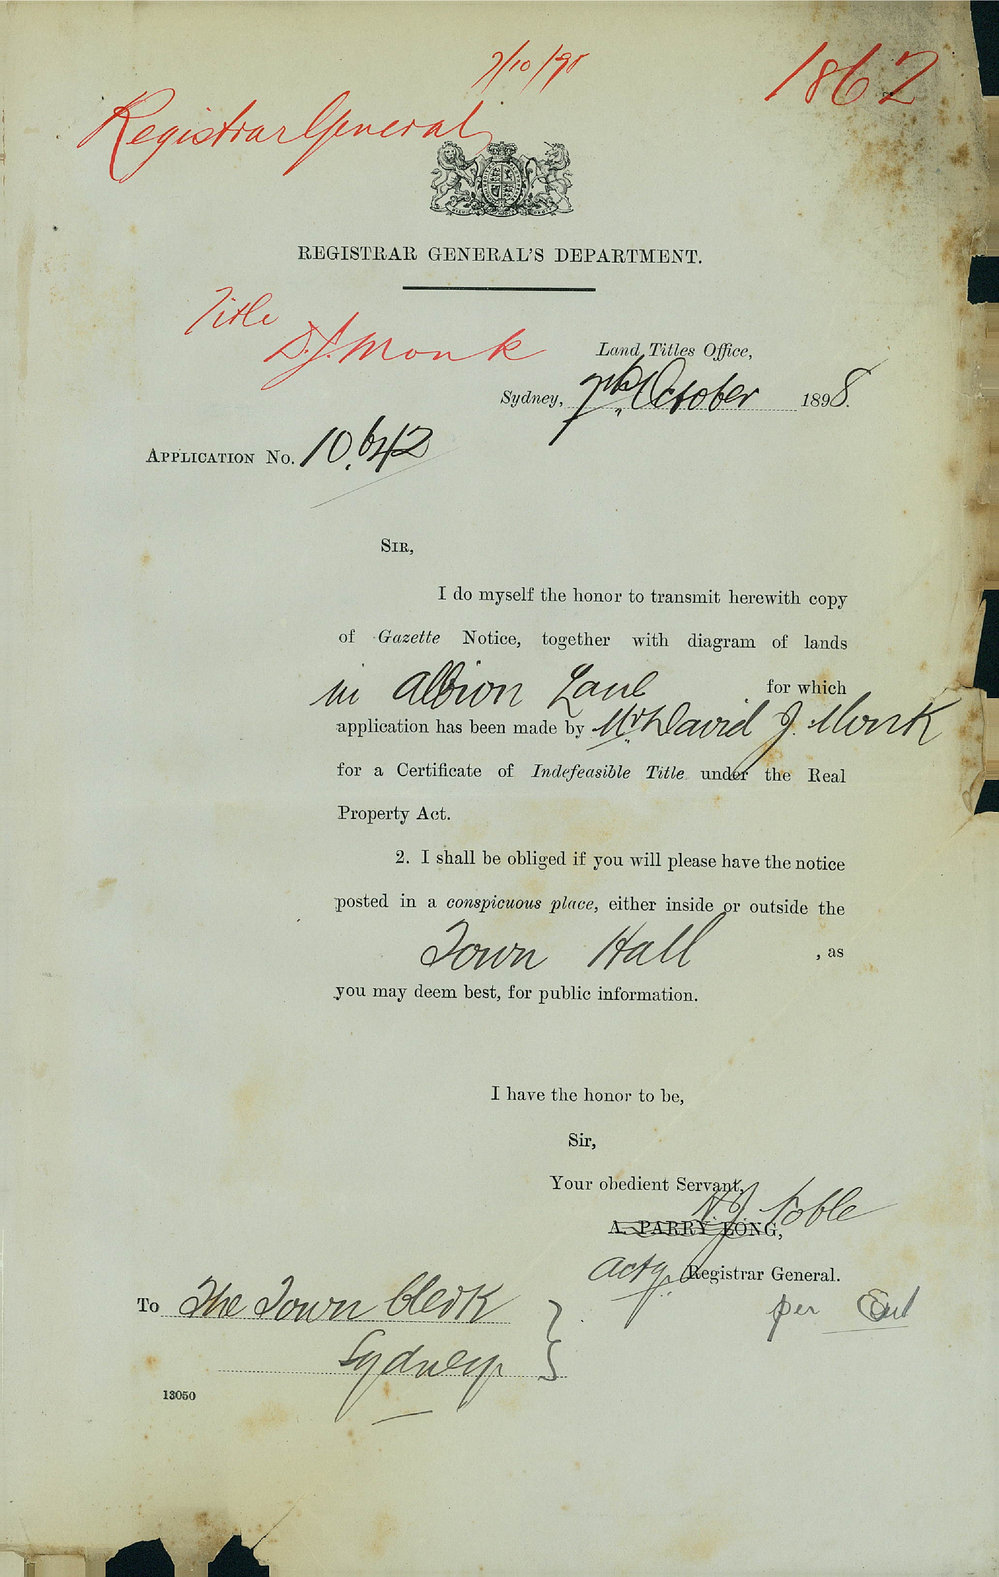 7/10/98
1862
Registrar General
REGISTRAR GENERAL'S DEPARTMENT.
Title
D. J. Monk
Land Titles Office,
Sydney, 7th October 1898.
APPLICATION No. 10,642
SIR,
I do myself the honor to transmit herewith copy
of Gazette Notice, together with diagram of lands
in Albion Lane for which
application has been made by Mr. David J. Monk
for a Certificate of Indefeasible Title under the Real
Property Act.
2. I shall be obliged if you will please have the notice
posted in a conspicuous place, either inside or outside the
Town Hall , as
you may deem best, for public information.
I have the honor to be,
Sir,
Your obedient Servant,
Noble
A. PARRY LONG,
Actg. Registrar General.
per
To The Town Clerk
Sydney
13050